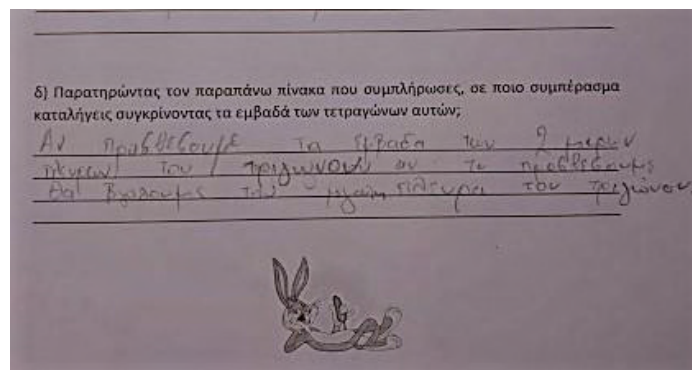 δ) Παρατηρώντας τον παραπάνω πίνακα που συμπλήρωσες, σε ποιο συμπέρασμα
καταλήγεις συγκρίνοντας τα εμβαδά των τετραγώνων αυτών;
Αν προσθέσουμε τα εμβαδα των 2
του τριγωνου αν τα προσθεσουμε
θα βγαλουμε την πλευρα του τριγωνου